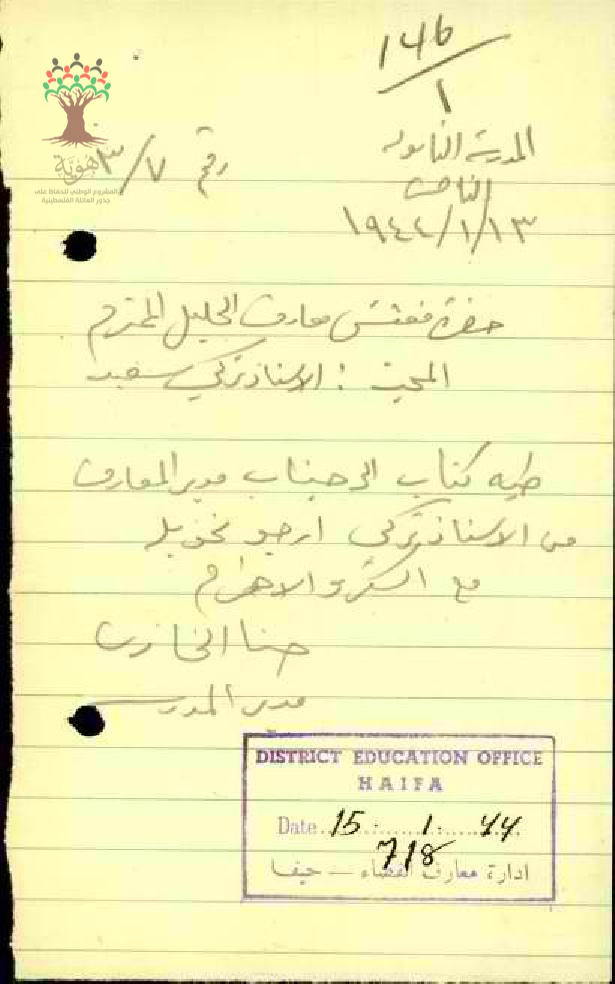 ١٤٦
١
المدرسة الثانوية
رقم ٣/٧
الناصرة
١٩٤٤/١/١٣
هوية
المشروع الوطني للحفاظ على
جذور العائلة الفلسطينية
حضرة مفتش معارف الجليل المحترم
المبحث : الاستاذ تركي سعيد
طيه كتاب الى جناب مدير المعارف
من الاستاذ تركي ارجو تحويله
مع الشكر والاحترام
حنا الخازن
مدير المدرسة
DISTRICT EDUCATION OFFICE
HAIFA
Date 15. 1. 44
718
ادارة معارف القضاء — حيفا